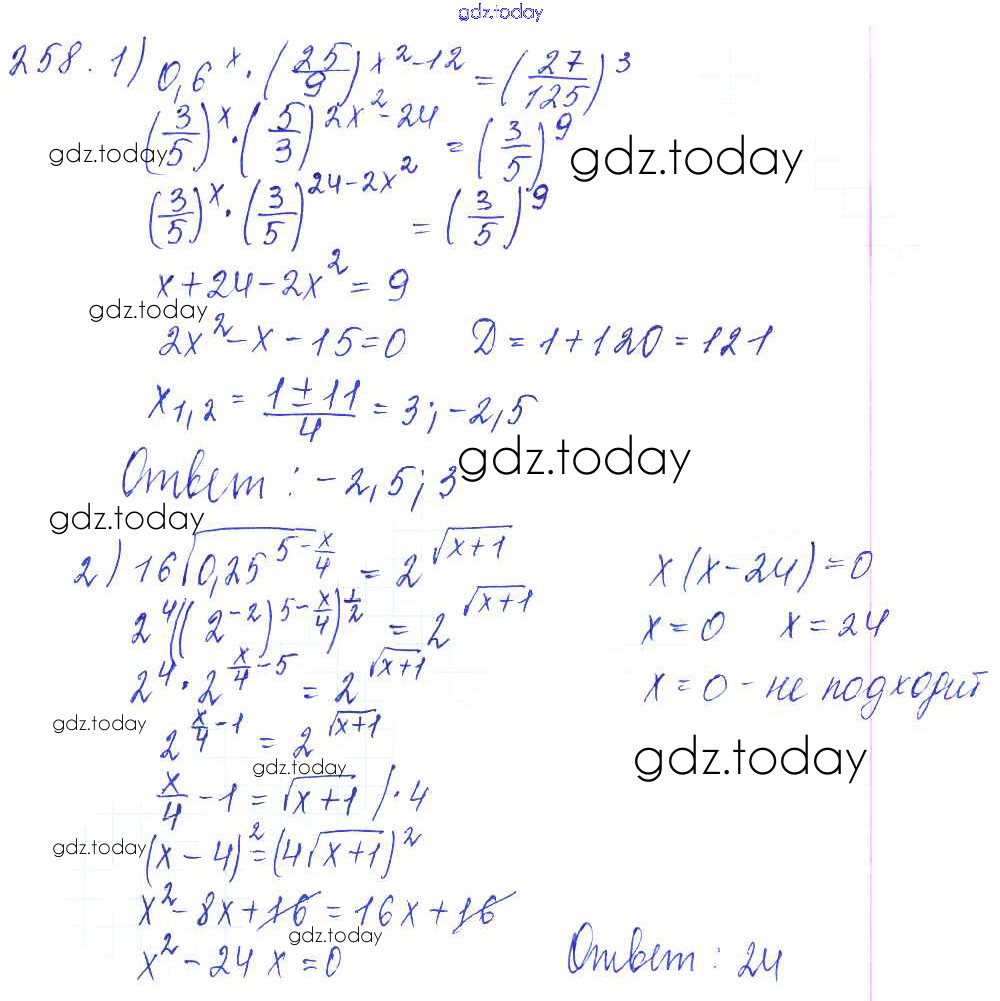 gdz.today
258. 1) 0,6^x · (25/9)^(x²-12) = (27/125)³
(3/5)^x · (5/3)^(2x²-24) = (3/5)^9
gdz.today gdz.today
(3/5)^x · (3/5)^(24-2x²) = (3/5)^9
x+24-2x² = 9
gdz.today
2x²-x-15=0 D=1+120=121
x₁,₂ = (1±11)/4 = 3; -2,5
gdz.today
Ответ: -2,5; 3
gdz.today
2) 16√(0,25^(5-x/4)) = 2^√(x+1)
2⁴((2⁻²)^(5-x/4))^(1/2) = 2^√(x+1)
2⁴ · 2^(x/4-5) = 2^√(x+1)
gdz.today
2^(x/4-1) = 2^√(x+1)
gdz.today
x/4-1=√(x+1) /·4
gdz.today
(x-4)²=(4√(x+1))²
x²-8x+16=16x+16
gdz.today
x²-24x=0
x(x-24)=0
x=0 x=24
x=0 - не подходит
gdz.today
Ответ: 24